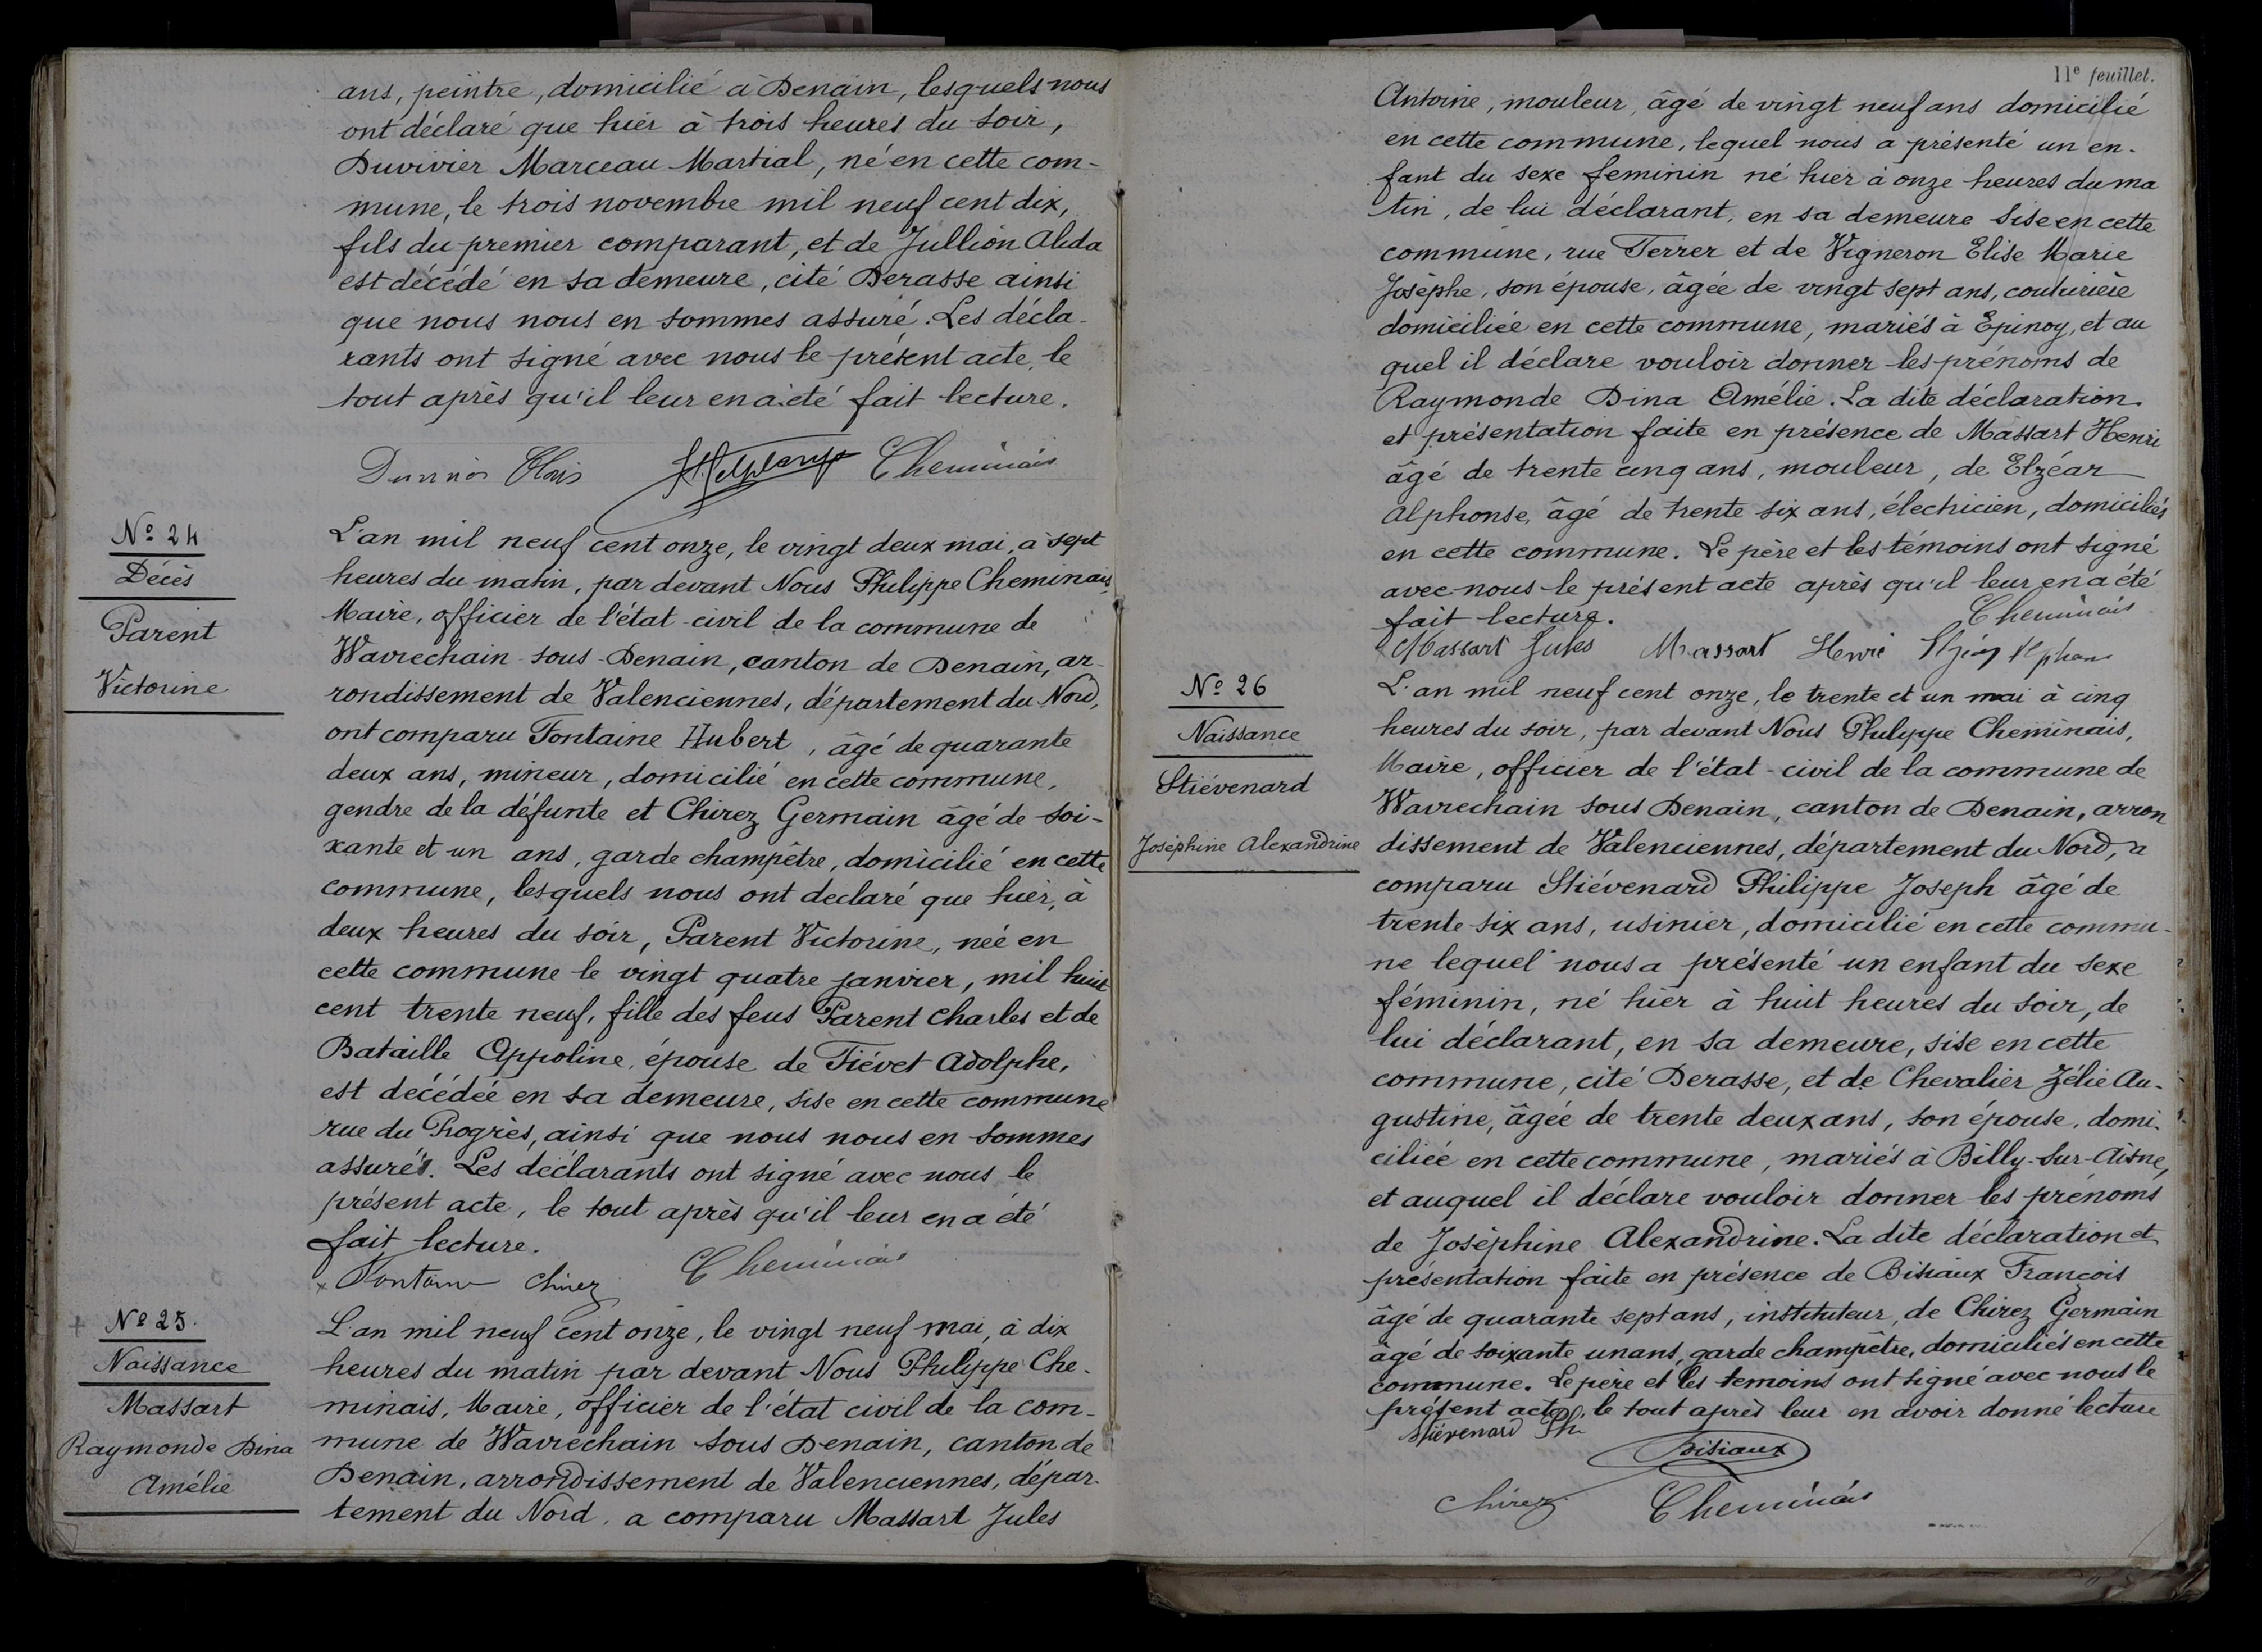 ans, peintre, domicilié à Denain, lesquels nous
ont déclaré que hier à trois heures du soir,
Duvivier Marceau Martial, né en cette com-
mune, le trois novembre mil neuf cent dix,
fils du premier comparant, et de Jullion Alida
est décédé en sa demeure, cité Derasse ainsi
que nous nous en sommes assuré. Les décla-
rants ont signé avec nous le présent acte, le
tout après qu'il leur en a été fait lecture.
Cheminais
N° 24
Décès
Parent
Victorine
L'an mil neuf cent onze, le vingt deux mai, à sept
heures du matin, par devant Nous Philippe Cheminais,
Maire, officier de l'état-civil de la commune de
Wavrechain-sous-Denain, canton de Denain, ar-
rondissement de Valenciennes, département du Nord,
ont comparu Fontaine Hubert, âgé de quarante
deux ans, mineur, domicilié en cette commune,
gendre de la défunte et Chirez Germain âgé de soi-
xante et un ans, garde champêtre, domicilié en cette
commune, lesquels nous ont declaré que hier, à
deux heures du soir, Parent Victorine, née en
cette commune le vingt quatre janvier, mil huit
cent trente neuf, fille des feus Parent Charles et de
Bataille Appoline, épouse de Fiévet Adolphe,
est décédée en sa demeure, sise en cette commune
rue du Progrès, ainsi que nous nous en sommes
assurés. Les déclarants ont signé avec nous le
présent acte, le tout après qu'il leur en a été
fait lecture.
Fontaine Chirez Cheminais
N° 25.
Naissance
Massart
Raymonde Dina
Amélie
L'an mil neuf cent onze, le vingt neuf mai, à dix
heures du matin par devant Nous Philippe Che-
minais, Maire, officier de l'état civil de la com-
mune de Wavrechain sous Denain, canton de
Denain, arrondissement de Valenciennes, dépar-
tement du Nord, a comparu Massart Jules
11e feuillet.
Antoine, mouleur, âgé de vingt neuf ans domicilié
en cette commune, lequel nous a présenté un en-
fant du sexe feminin né hier à onze heures du ma
tin, de lui déclarant, en sa demeure sise en cette
commune, rue Ferrer et de Vigneron Elise Marie
Josèphe, son épouse, âgée de vingt sept ans, couturière
domiciliée en cette commune, mariés à Epinoy, et au
quel il déclare vouloir donner les prénoms de
Raymonde Dina Amélie. La dite déclaration
et présentation faite en présence de Massart Henri
âgé de trente cinq ans, mouleur, de Elzéar
Alphonse, âgé de trente six ans, électricien, domiciliés
en cette commune. Le père et les témoins ont signé
avec nous le présent acte après qu'il leur en a été
fait lecture. Cheminais
Massart Jules Massart Henri
N° 26
Naissance
Stiévenard
Joséphine Alexandrine
L'an mil neuf cent onze, le trente et un mai à cinq
heures du soir, par devant Nous Philippe Cheminais,
Maire, officier de l'état-civil de la commune de
Wavrechain sous Denain, canton de Denain, arron
dissement de Valenciennes, département du Nord, a
comparu Stiévenard Philippe Joseph âgé de
trente-six ans, usinier, domicilié en cette commu-
ne lequel nous a présenté un enfant du sexe
féminin, né hier à huit heures du soir, de
lui déclarant, en sa demeure, sise en cette
commune, cité Derasse, et de Chevalier Zélie Au-
gustine, âgée de trente deux ans, son épouse, domi-
ciliée en cette commune, mariés à Billy-sur-Aisne,
et auquel il déclare vouloir donner les prénoms
de Joséphine Alexandrine. La dite déclaration et
présentation faite en présence de Bisiaux François
âgé de quarante sept ans, instituteur, de Chirez Germain
âgé de soixante un ans, garde champêtre, domiciliés en cette
commune. Le père et les temoins ont signé avec nous le
présent acte, le tout après leur en avoir donné lecture
Stiévenard Ph.
Bisiaux
Chirez Cheminais